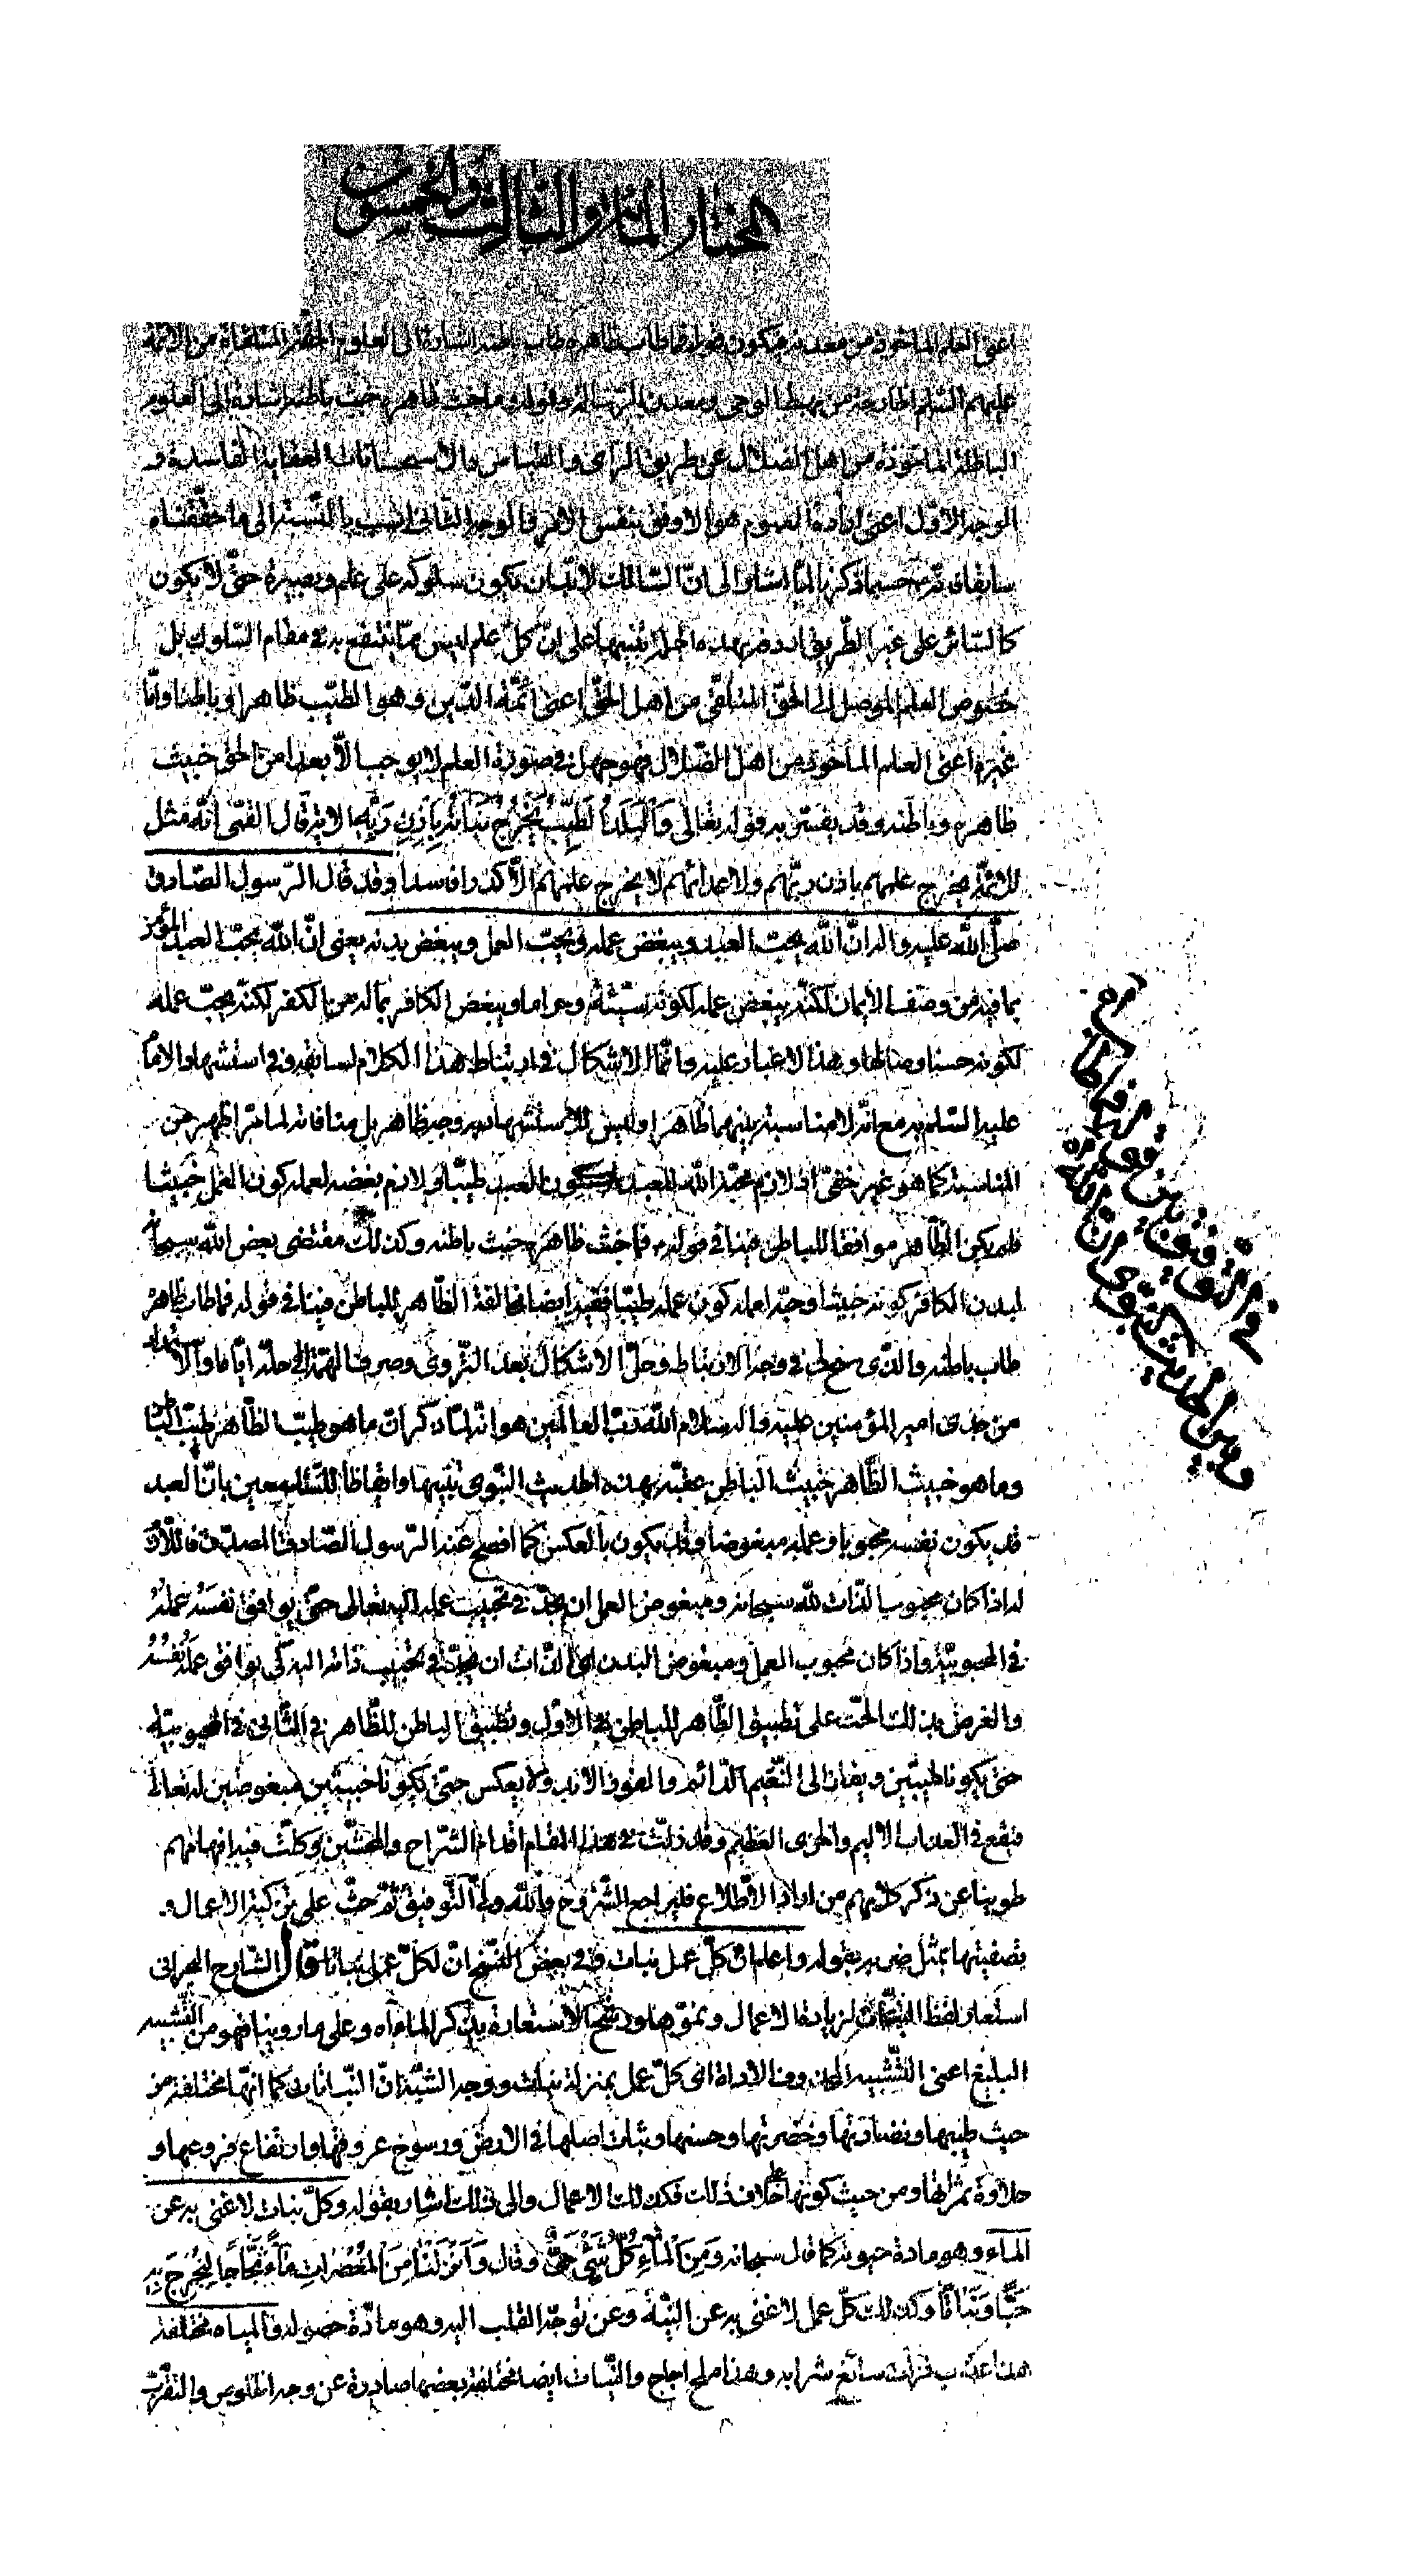 المختار المائة والثالث والخمسون
اعنى العلم المأخوذ من معدنه فيكون قوله فما طاب ظاهره طاب باطنه اشارة الى العلوم الحقّة المتلقاة من الائمّة
عليهم السّلم الخارجة من مهبط الوحى ومعدن الرّسالة وقوله وما خبث ظاهره خبث باطنه اشارة الى العلوم
الباطلة المأخوذة من اهل الضلال عن طريق الراى والقياس والاستحسانات العقايد الفاسدة و
الوجه الاوّل اعنى ارادة العموم هو الاوفق بنفس الامر والوجه الثّانى انسب بالنّسبة الى ما حقّقناه
سابقا فانه حسبما ذكرنا لمّا اشار الى انّ السّالك لابدّ ان يكون سلوكه على علم وبصيرة حتّى لا يكون
كالسّائر على غير الطّريق اردفه بهذه الجملة تنبيها على انّ كلّ علم ليس ممّا ينتفع به فى مقام السّلوك بل
خصوص العلم الموصل الى الحقّ المتلقّى من اهل الحقّ اعنى ائمّة الدّين وهو الطّيّب ظاهرا وباطنا وامّا
غيره اعنى العلم المأخوذ من اهل الضّلال فهو جهل فى صورة العلم لا يوجب الاّ بعدا من الحق خبيث
ظاهره وباطنه وقد يفسّر به قوله تعالى وَالْبَلَدُ الطَّيِّبُ يَخْرُجُ نَبَاتُهُ بِاِذْنِ رَبِّهِ الاية قال القمّى انّه مثل
للائمّة يخرج علمهم باذن ربّهم ولاعدائهم لا يخرج علمهم الاّ كذرا فاسدا وقد قال الرّسول الصّادق
صلّى الله عليه واله انّ الله يحبّ العبد ويبغض عمله ويحبّ العمل ويبغض بدنه يعنى انّ الله يحبّ العبد المؤمن
بما فيه من وصف الايمان لكنّه يبغض عمله لكونه سيّئة وحراما ويبغض الكافر بما له من الكفر لكنّه يحبّ عمله
لكونه حسنا وصالحا وهذا لا غبار عليه وانّما الاشكال فى ارتباط هذا الكلام لسابقه وفى استشهاد الامام
عليه السّلم به مع انّه لا مناسبة بينهما ظاهرا وليس للاستشهاد به وجه ظاهر بل منافاته لما مرّ اظهر من
المناسبة كما هو غير خفىّ اذ لازم محبّة الله للعبد كون العبد طيّبا ولازم بغضه لعمله كون العمل خبيثا
فلم يكن الظّاهر موافقا للباطن فينافى قوله فما خبث ظاهره خبث باطنه وكذلك مقتضى بغض الله سبحانه
لبدن الكافر كونه خبيثا وحبّه لعمله كون عمله طيّبا ففيه ايضا مخالفة الظّاهر للباطن فينافى قوله فما طاب ظاهره
طاب باطنه والّذى سنح لى فى وجه الارتباط وحلّ الاشكال بعد التّروّى وصرف الهمّة الى حلّه ايّاما والاستمداد
من جدّى امير المؤمنين عليه واله سلام الله ربّ العالمين هو انّه لمّا ذكر ان ما هو طيّب الظّاهر طيّب الباطن
وما هو خبيث الظّاهر خبيث الباطن عقّبه بهذه الحديث النّبوى تنبيها وايقاظا للسّامعين بانّ العبد
قد يكون نفسه محبوبا وعمله مبغوضا وقد يكون بالعكس كما افصح عنه الرّسول الصّادق المصدّق فاللازم
له اذا كان محبوب الذّات لله سبحانه ومبغوض العمل ان يجدّ فى تحبيب عمله اليه تعالى حتّى يوافق نفسَه عملُه
فى المحبوبيّة واذا كان محبوب العمل ومبغوض البدن اى الذّات ان يجدّ فى تحبيب ذاته اليه كى يوافق عملَه نفسُه
والغرض بذلك الحثّ على تطبيق الظّاهر للباطن فى الاوّل وتطبيق الباطن للظّاهر فى الثّانى فى المحبوبيّة
حتى يكونا طيّبين ويصلا الى النّعيم الدّائم والفوز الابد ولا يعكس حتّى يكونا خبيثين مبغوضين له تعالى
فيقع فى العذاب الاليم والخزى العظيم وقد زلّت فى هذا المقام اقدام الشّراح والمحشّين وكلّت فيه افهامهم
طوينا عن ذكر كلامهم من اراد الاطّلاع فليراجع الشّروح والله ولىّ التّوفيق ثمّ حثّ على تزكية الاعمال و
تصفيتها بمثل ضربه بقوله واعلم انّ كلّ عمل نبات وفى بعض النّسخ انّ لكلّ عمل نباتا قال الشّارح البحرانى
استعار لفظ النّبات لزيادة الاعمال ونموّها ورشّح الاستعارة بذكر الماء اه وعلى ما روينا فهو من التّشبيه
البليغ اعنى التّشبيه المحذوف الاداة اى كلّ عمل بمنزلة نبات ووجه الشّبه انّ النّباتات كما انّها مختلفة من
حيث طيبها ونضارتها وخضرتها وحسنها وثبات اصلها فى الارض ورسوخ عروقها وارتفاع فروعها و
حلاوة ثمراتها ومن حيث كونها خلاف ذلك فكذلك الاعمال والى ذلك اشار بقوله وكلّ نبات لا غنى به عن
الماء وهو مادة حيوته كما قال سبحانه وَمِنَ الْمَاءِ كُلُّ شَىْءٍ حَىٍّ وقال وَاَنْزَلْنَا مِنَ الْمُعْصِرَاتِ مَاءً ثَجَّاجًا لِنُخْرِجَ بِهِ
حَبًّا وَنَبَاتًا وكذلك كلّ عمل لا غنى به عن النيّة وعن توجّه القلب اليه وهو مادّة حصوله والمياه مختلفة
هذا عذب فرات سائغ شرابه وهذا ملح اجاج والنّيات ايضا مختلفة بعضها صادرة عن وجه الخلوص والتقرّب